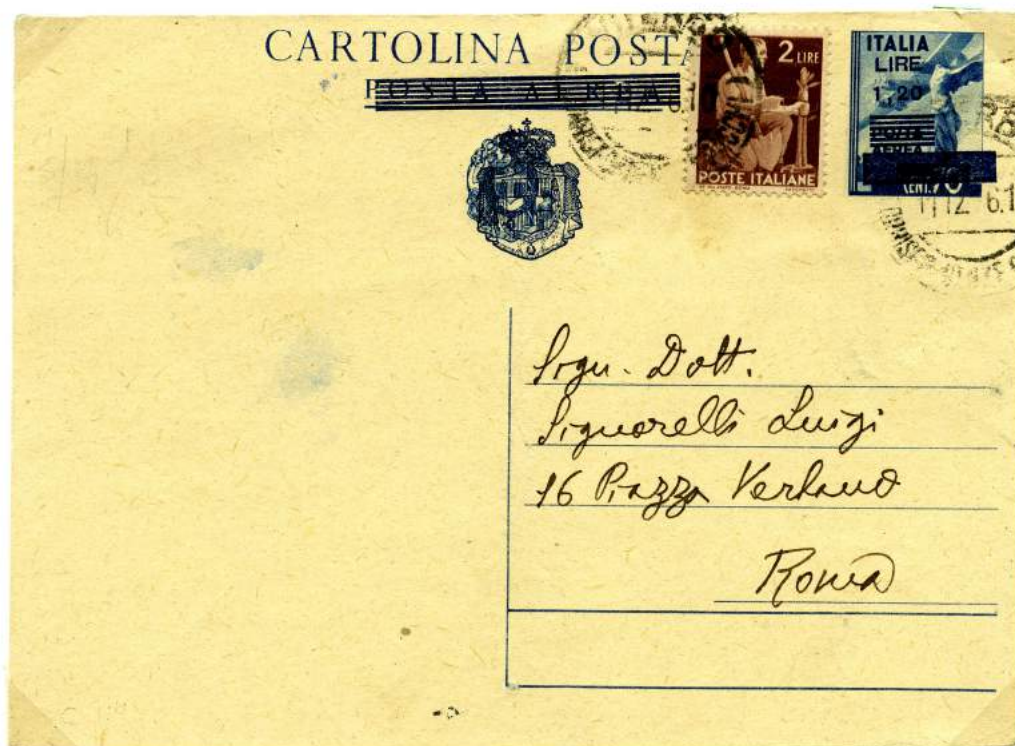 CARTOLINA POSTA
POSTA AEREA
2 LIRE
POSTE ITALIANE
ITALIA
LIRE
1,20
POSTA
AEREA
CENT. 70
Sign. Dott.
Signorelli Luigi
16 Piazza Verbano
Roma